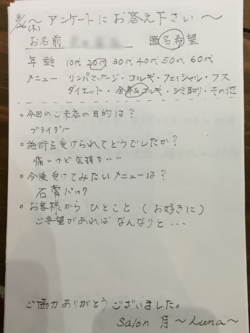 ～アンケートにお答え下さい～
お名前 匿名希望
年齢 10代 20代 30代 40代 50代 60代
メニュー リンパマッサージ・コルギ・フェイシャル・フス
ダイエット・全身コルギ・シミ取り・その他
○今回のご来店の目的は？
ブライダル
○施術を受けられてどうでしたか？
痛いけど
○今後受けてみたいメニューは？
石膏パック
○お客様からひとこと（お好きに）
ご要望があればなんなりと…
ご協力ありがとうございました。
Salon 月 ～Luna～